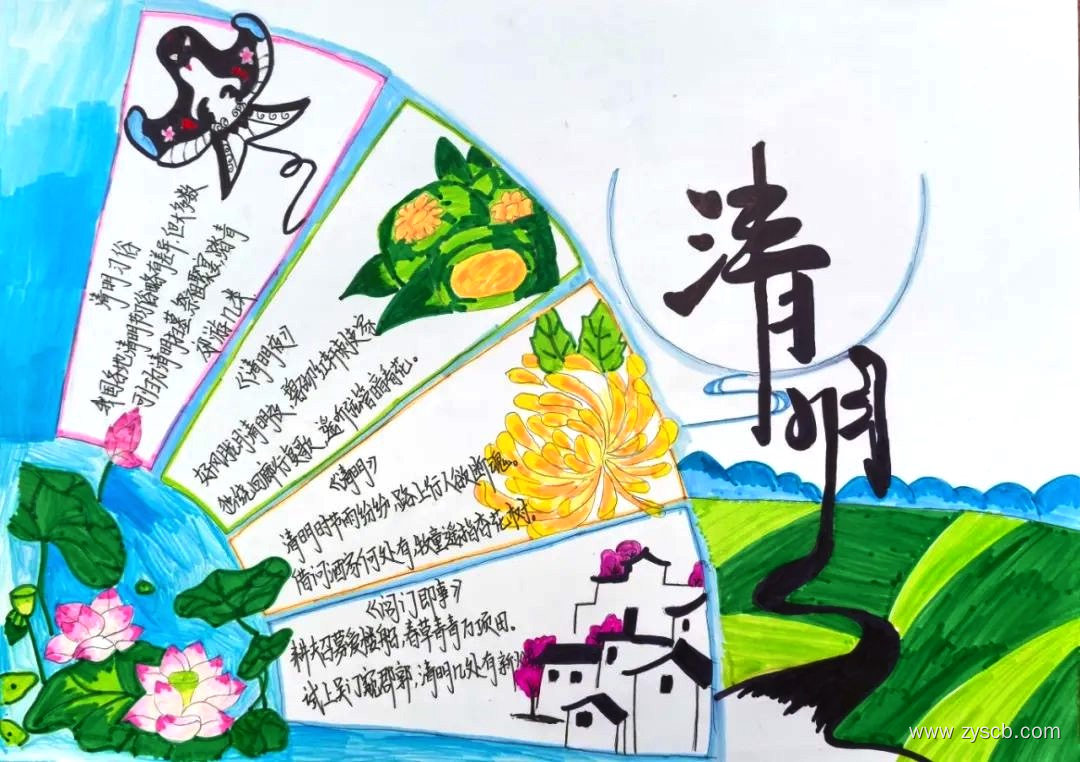 清明
清明习俗
我国各地清明节习俗略有差异,但大多数
可归为清明扫墓、祭祖聚宴、踏青
郊游几类
《清明夜》
好风胧月清明夜,碧砌红轩刺史家
独绕回廊行复歇,遥听弦管暗看花。
《清明》
清明时节雨纷纷,路上行人欲断魂。
借问酒家何处有,牧童遥指杏花树.
门即事》
耕夫召募爱楼船,春草青青万项田.
试上吴门窥郡郭,清明几处有新
www.zyscb.com